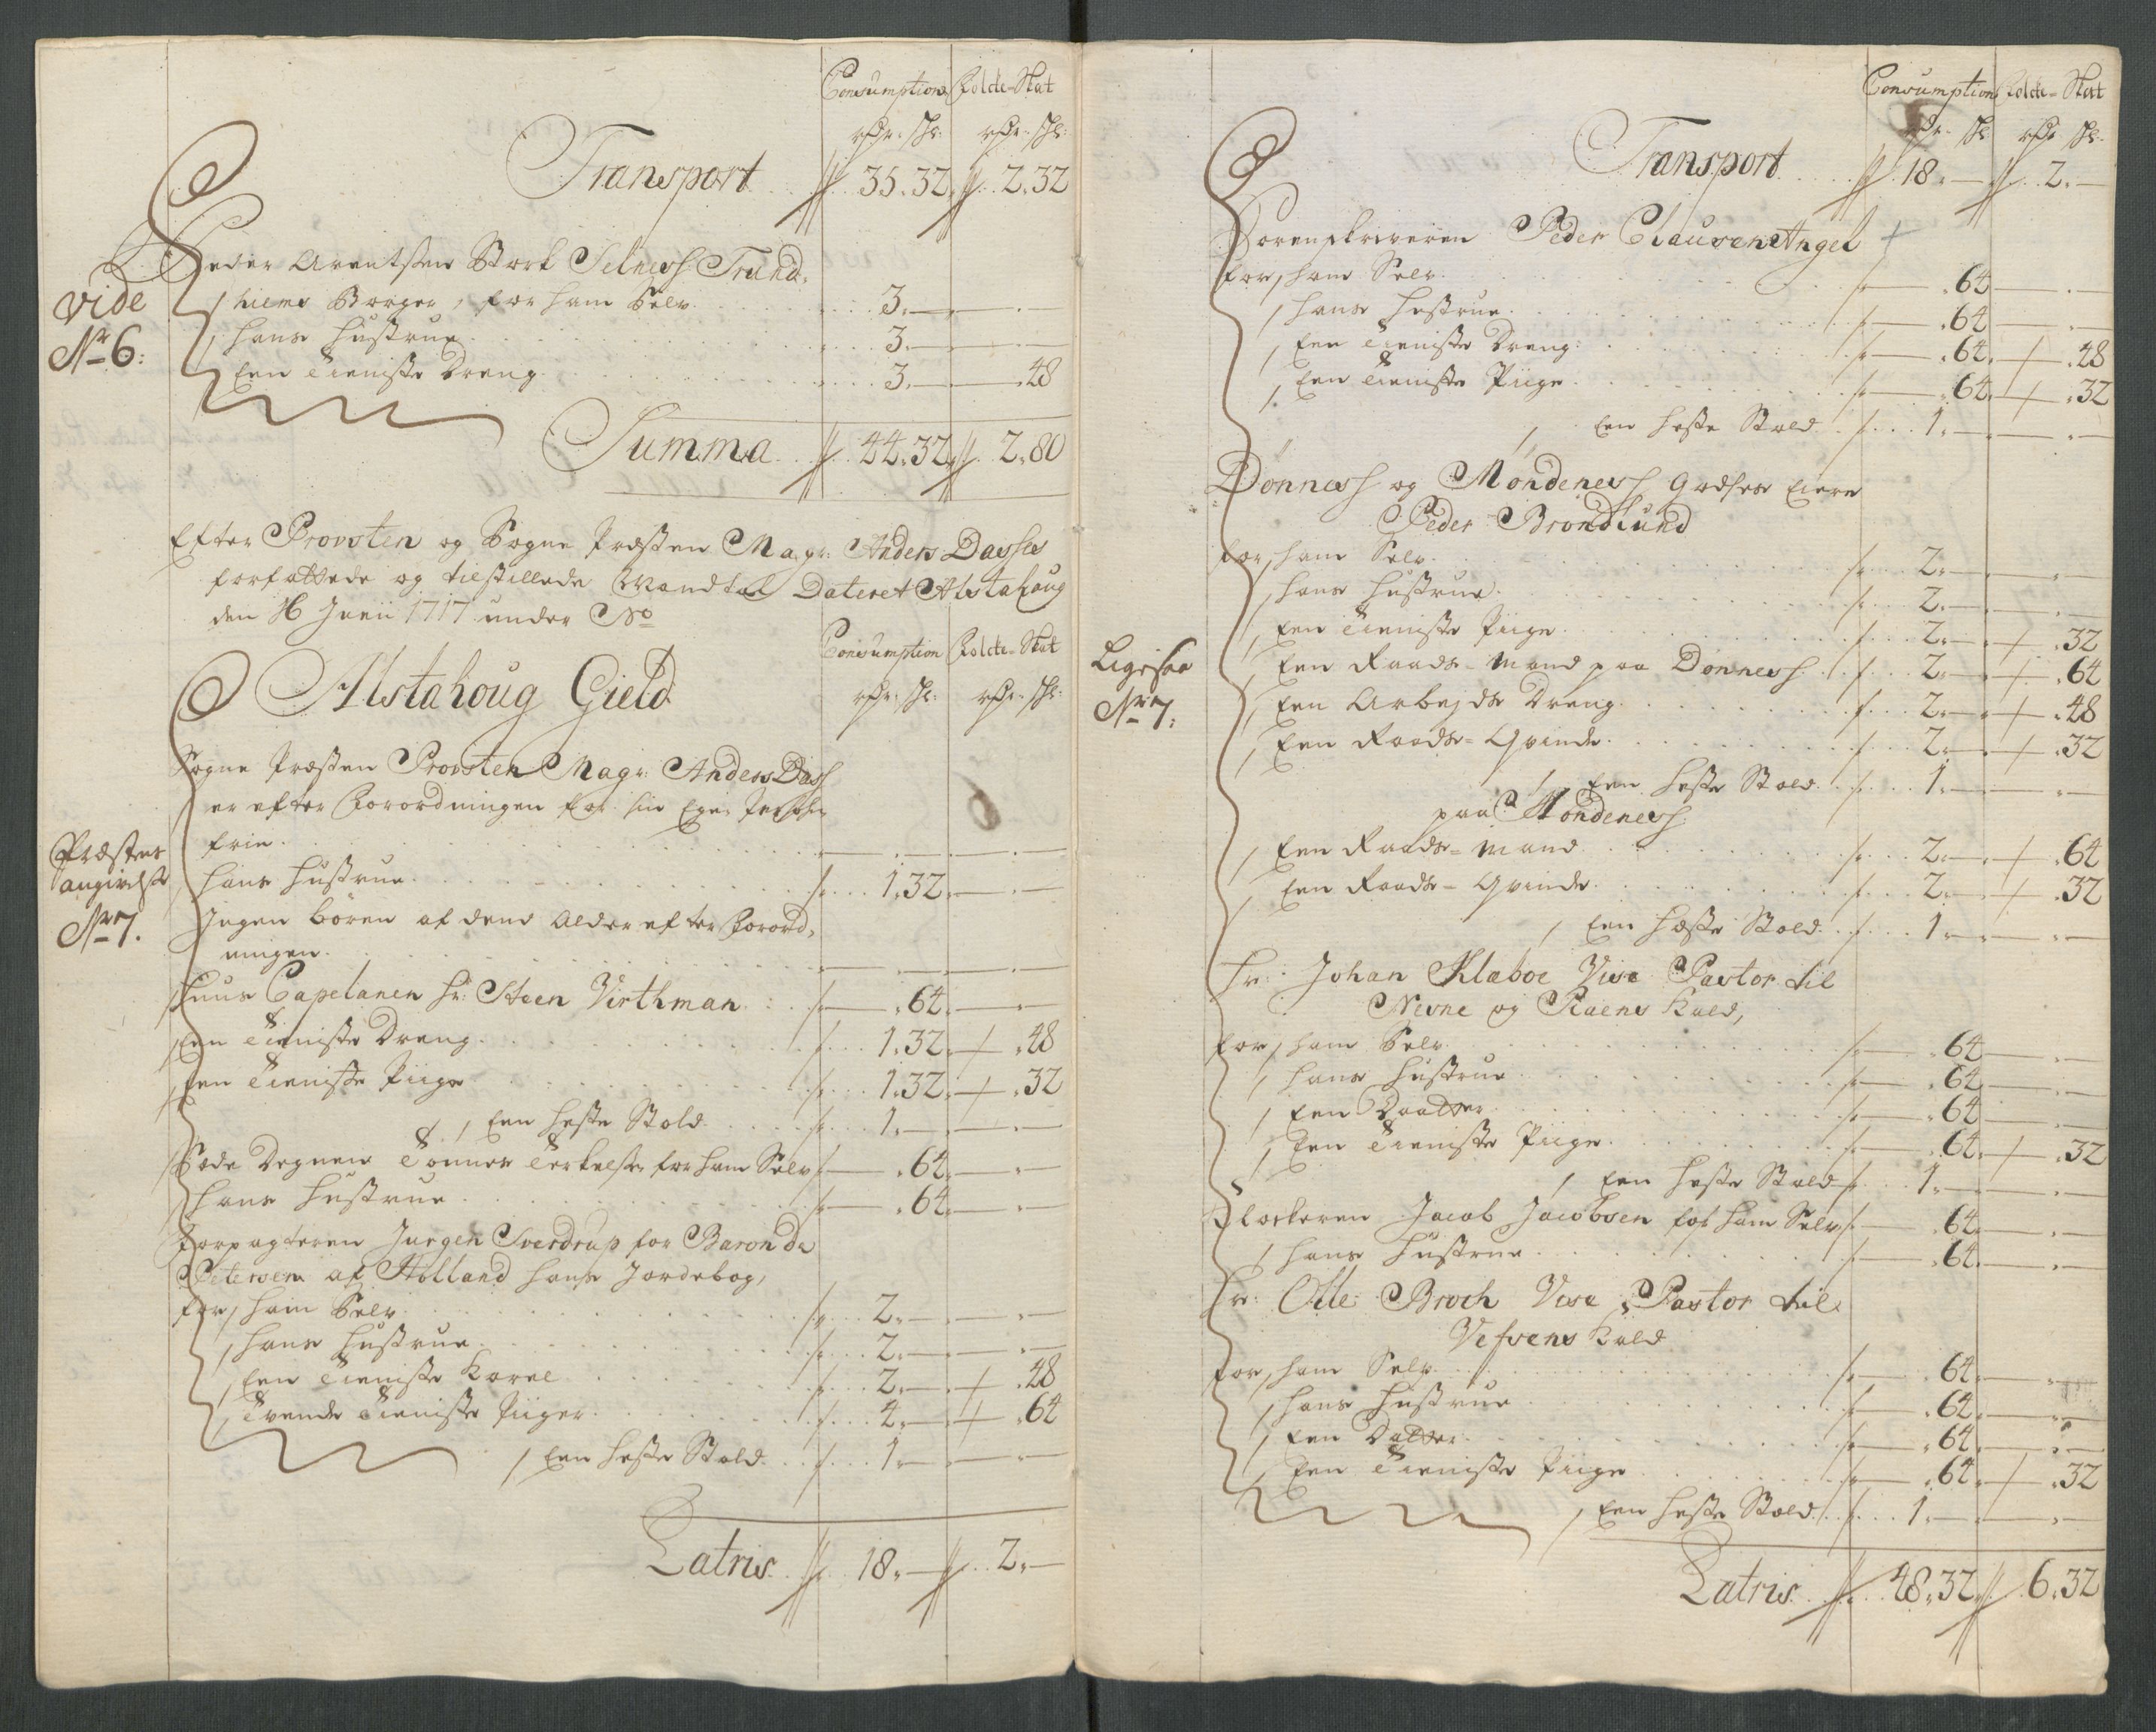 Consumption Folcke-Skat
rdr. sk: rdr. sk:
Transport 35.32. 2.32
Peder Arentsen Bork Selnesh Trund,
hiems Borger, for ham Selv 3.—
vide
No 6:
hans Hustrue 3.—
Een Tieniste Dreng 3.— .48
Summa 44.32 2.80
Efter Provsten og Sogne Præsten Magr: Anders Dasses
forfattede og tilstillede Mandtal Dateret Alstahoug
den 16 Junii 1717 under No
Consumption Folcke-Skat
Alstahoug Gield rdr. sk: rdr. sk:
Sogne Præsten Provsten Magr: Anders Dass
er efter Forordningen for sin Egen Person
frie
Præstens
angivelse
No 7.
hans Hustrue 1.32.
Ingen Børen af dend Alder efter Forord,
ningen
Huus Capelanen Hr: Steen Virthman .64.
Een Tieniste Dreng 1.32. .48
Een Tieniste Piige 1.32. .32
, Een Heste Stold 1.—
Sæde Degnen Tønnes Terkelsen for ham Selv .64.
hans Hustrue .64.
Forpagteren Jurgen Sverdrup for Baron de
Petersen af Holland hans Jordebog,
for, ham Selv 2.—
, hans Hustrue 2.—
, Een Tieniste Karel 2.— .48
, Tvende Tieniste Piiger 4.— .64
, Een Heste Stold 1.—
Latris 18.— 2.—
Consumption Folcke-Skat
rdr. sk rdr sk:
Transport 18.— 2.—
Sorenskriveren Peder Clausen Angel
for, ham Selv .64
, hans Hustrue .64
, Een Tieniste Dreng .64. .48
, Een Tieniste Piige .64. .32
, Een Heste Stold 1.—
Dönnesh og Möndenesh Godses Eiere
Peder Brondlund
for, ham Selv 2.—
, hans Hustrue 2.—
, Een Tieniste Piige 2.— .32
Ligesaa
No 7:
, Een Raads-Mand paa Dønnesh 2.— .64
, Een Arbejds Dreng 2.— .48
, Een Raads-Qvinde 2.— .32
, Een Heste Stold 1.—
paa Möndenesh
, Een Raads-Mand 2.— .64
, Een Raads-Qvinde 2.— .32
, Een Hæste Stold 1.—
Hr: Johan Klaboe Vise Pastor til
Nesne og Raens Kald,
for, ham Selv .64
, hans Hustrue .64
, Een Daatter .64
, Een Tieniste Piige .64. .32
, Een Heste Stold 1.—
Klockeren Jacob Jacobsen for ham Selv .64.
, hans Hustrue .64
Hr: Otte Broch Vise Pastor til
Vefsens Kald
for, ham Selv .64.
, hans Hustrue .64.
, Een Datter .64
, Een Tieniste Piige .64. .32
, Een Heste Stold 1.—
Latris 48.32. 6.32